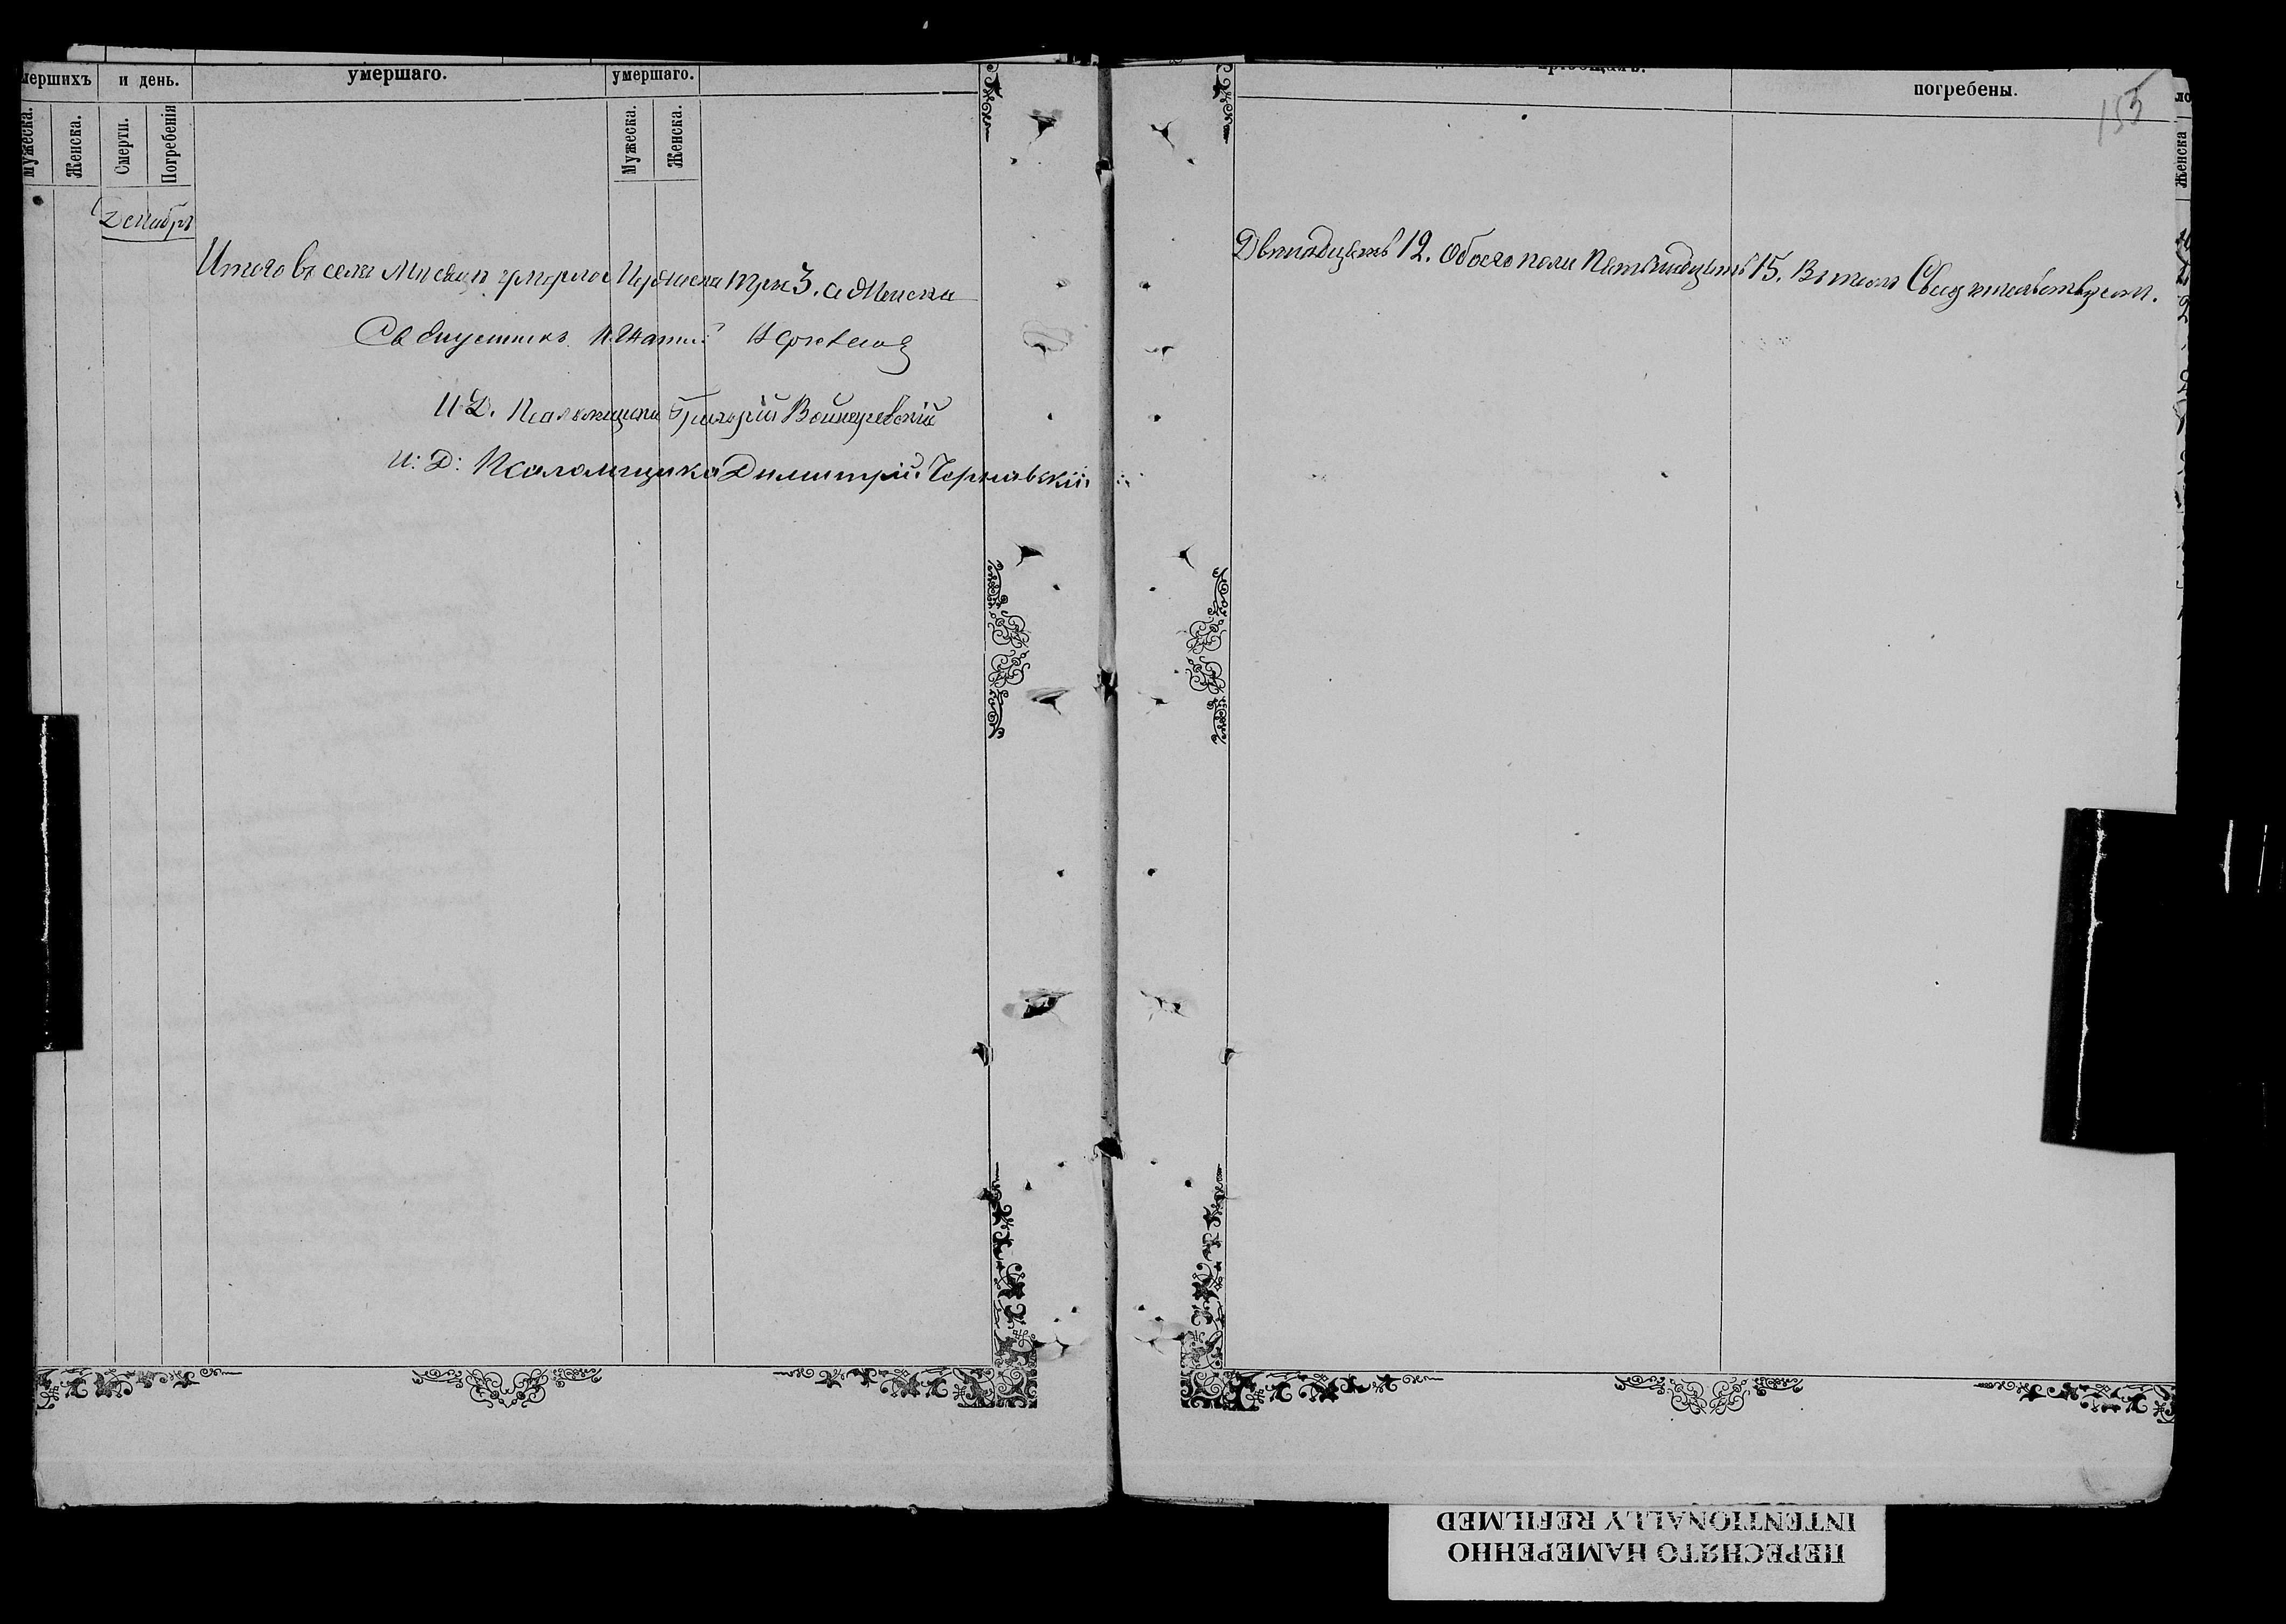 мершихъ и день. умершаго. умершаго.
Мужеска. Женска. Смерти. Погребенія Мужеска. Женска.
Декабрь
Итого въ селѣ умерло Мужеска три 3. а Женска
Священникъ
И. Д. Псаломщика Григорій
И: Д: Псаломщика Димитрій Чернявскій
погребены.
153
Женска
Двенадцать 12. Обоего пола Пятьнадцать 15. Въ томъ Свидетельствуемъ.
ПЕРЕСНЯТО НАМЕРЕННО
INTENTIONALLY REFILMED